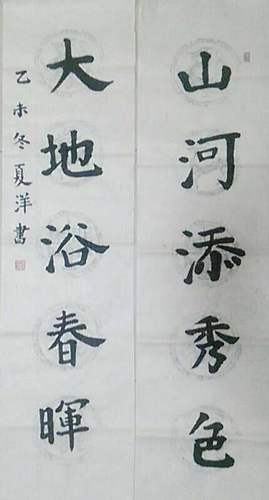 山河添秀色
大地浴春暉
乙未冬夏洋書